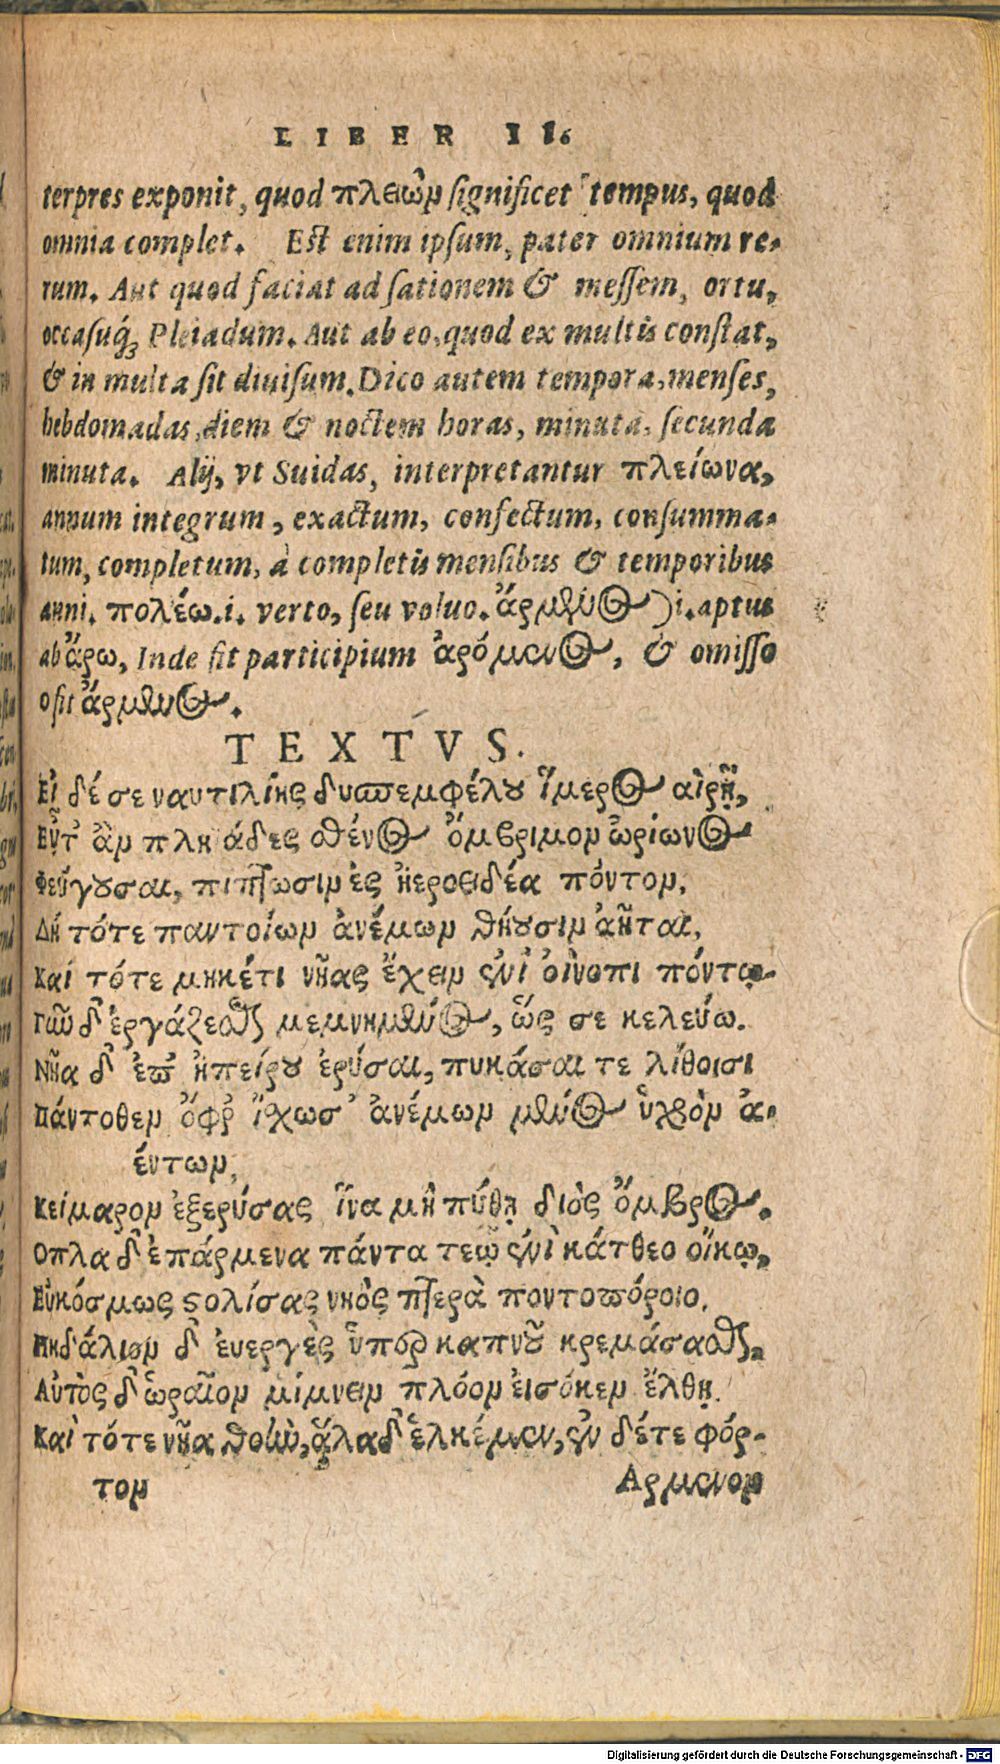 LIBER II.
terpres exponit, quod πλειὼν significet tempus, quod
omnia complet. Est enim ipsum, pater omnium re-
rum. Aut quod faciat ad sationem & messem, ortu,
occasuq́ꝫ Pleiadum. Aut ab eo, quod ex multis constat,
& in multa sit diuisum. Dico autem tempora, menses,
hebdomadas, diem & noctem horas, minuta, secunda
minuta. Alij, vt Suidas, interpretantur πλείωνα,
annum integrum, exactum, confectum, consumma-
tum, completum, à completis mensibus & temporibus
anni. πολέω.i. verto, seu voluo. ἄρμενος )i. aptus
ab ἄρω, Inde fit participium ἀρόμενος, & omisso
o fit ἄρμενος.
TEXTVS.
Εἰ δέ σε ναυτιλίης δυσπεμφέλου ἵμερος αἱρῇ,
Εὖτ' ἂν πληάδες σθένος ὄμβριμον ὠρίωνος
Φεύγουσαι, πιπτωσιν ἐς ἠεροειδέα πόντον,
Δή τότε παντοίων ἀνέμων θήουσιν ἀῆται,
Καί τότε μηκέτι νῆας ἔχειν ἐνὶ οἴνοπι πόντῳ.
Γῆν δ' ἐργάζεσθαι μεμνημένος, ὥς σε κελεύω.
Νῆα δ' ἐπ' ἠπείρου ἐρύσαι, πυκάσαι τε λίθοισι
Πάντοθεν ὄφρ' ἴχωσ' ἀνέμων μένος ὑγρὸν ἀ-
έντων,
Χείμαρον ἐξερύσας ἵνα μὴ πύθῃ διὸς ὄμβρος.
Οπλα δ' ἐπάρμενα πάντα τεῷ ἐνὶ κάτθεο οἴκῳ,
Εὐκόσμως στολίσας νηὸς πτερὰ ποντοπόροιο.
Πηδάλιον δ' ἐυεργὲς ὑπὲρ καπνοῦ κρεμάσασθαι.
Αὐτὸς δ' ὡραῖον μίμνειν πλόον εἰσόκεν ἔλθῃ.
Καὶ τότε νῆα θοὴν, ἅλαδ' ἑλκέμεν, ἐν δέτε φόρ-
τον Αρμενον